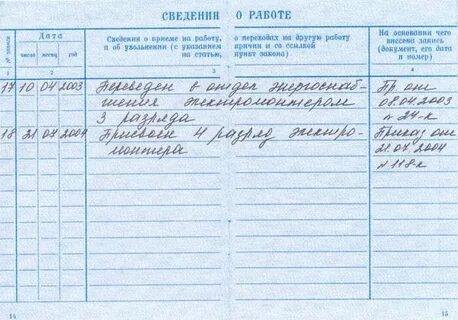 СВЕДЕНИЯ О РАБОТЕ
№ записи
Дата
число месяц год
Сведения о приеме на работу, о переводах на другую работу
и об увольнении (с указанием причин и со ссылкой
на статью, пункт закона)
На основании чего
внесена запись
(документ, его дата
и номер)
1 2 3 4
17 10 04 2003 Переведен в отдел энергоснаб- Пр. от
жения электромонтером 08.04.2003
3 разряда № 27-к
18 21 07 2004 Присвоен 4 разряд электро- Приказ от
монтера 21.07.2004
№ 118-к
14 15